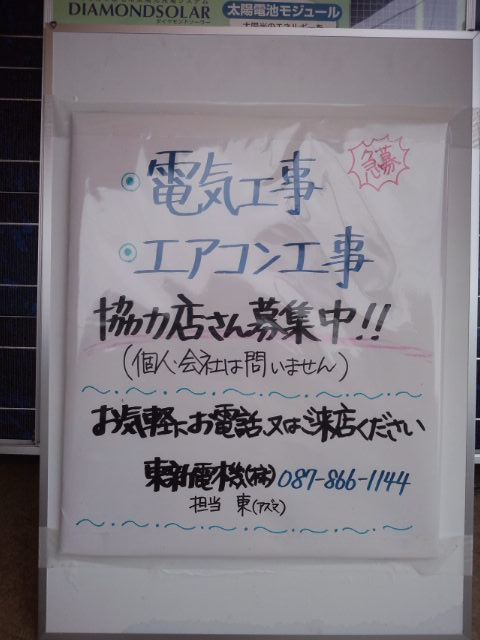 DIAMONDSOLAR
ダイヤモンドソーラー
太陽電池モジュール
急募
・電気工事
・エアコン工事
協力店さん募集中!!
(個人・会社は問いません)
お気軽にお電話、又はご来店ください
東新電機(株) 087-866-1144
担当 東(アズマ)